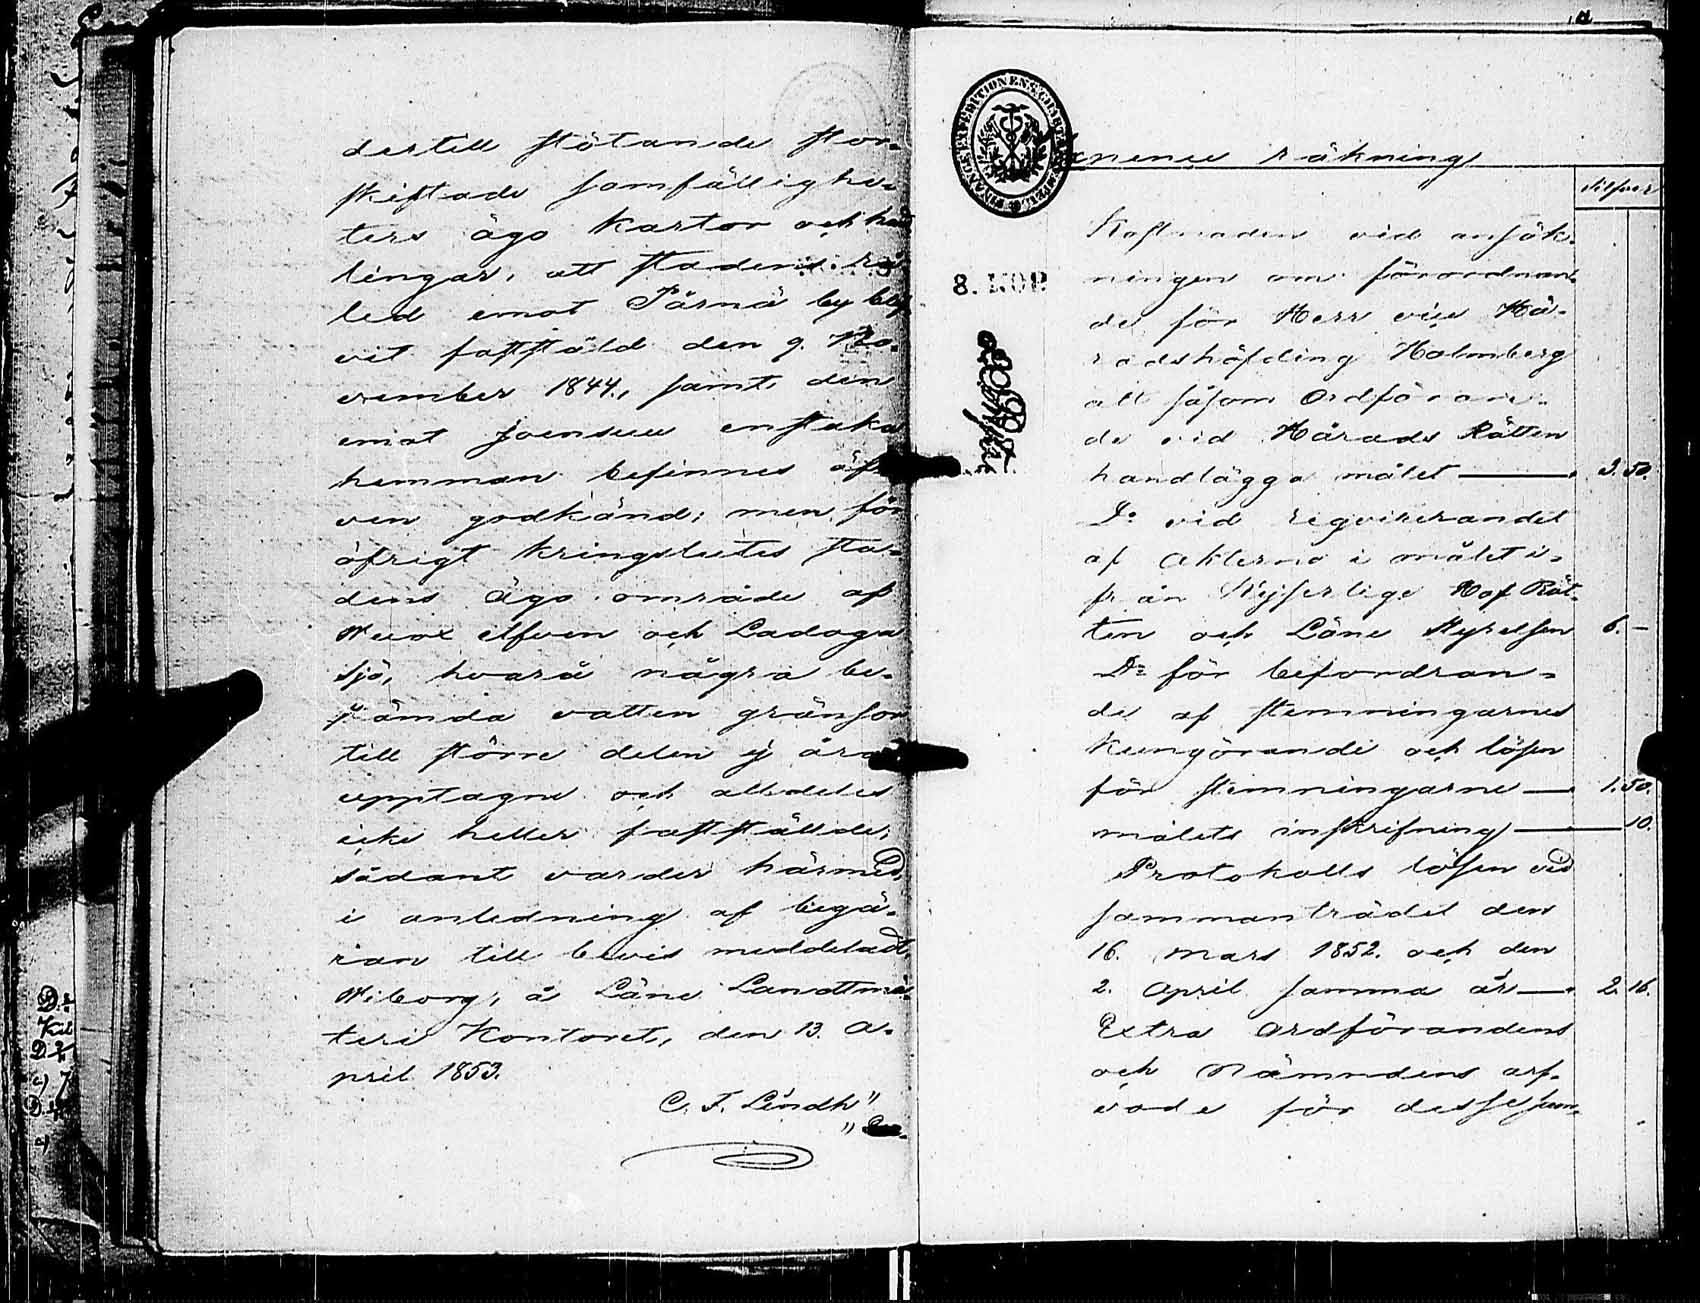 dertill stötande stor-
skiftade samfällighe-
ters ägo kartor och
lingar, att stadens rå
led emot Pärnä by blif
vit fastställd den 9. No-
vember 1844., samt den
emot Joensuu enstaka
hemman befinnes äf-
ven godkänd; men för
öfrigt kringslutes sta-
dens ägo område af
Wuox elfven och Ladoga
sjö, hvarå några be-
stämda vatten gränsor
till större delen ej äro
upptagne och alldeles
icke heller fastställde;
sådant varder härmed,
i anledning af begä-
ran till bevis meddeladt.
Wiborg, å Läne Landtmä-
teri Kontoret, den 13. A-
pril 1853.
C. F. Lindh"
FINANCE EXPEDITIONENS CHARTÆ
8. KOP
Expence räkning
Silfver
Kostnaden vid ansök-
ningen om förordnan-
de för Herr vice Hä-
radshöfding Holmberg
att såsom Ordföran-
de vid Härads Rätten
handlägga målet — 3. 50.
Do vid reqvirerandet
af Akterne i målet i-
från Kejserlige Hof Rät-
ten och Läne Styrelsen 6. —
Do för befordran-
de af stemningarnes
kungörande och lösen
för stemningarne — 1. 50.
målets inskrifning — 10.
Protokolls lösen vid
sammanträdet den
16. Mars 1852. och den
2. April samma år — 2. 16.
Extra Ordförandens
och Nämndens arf-
vode för desse sam-